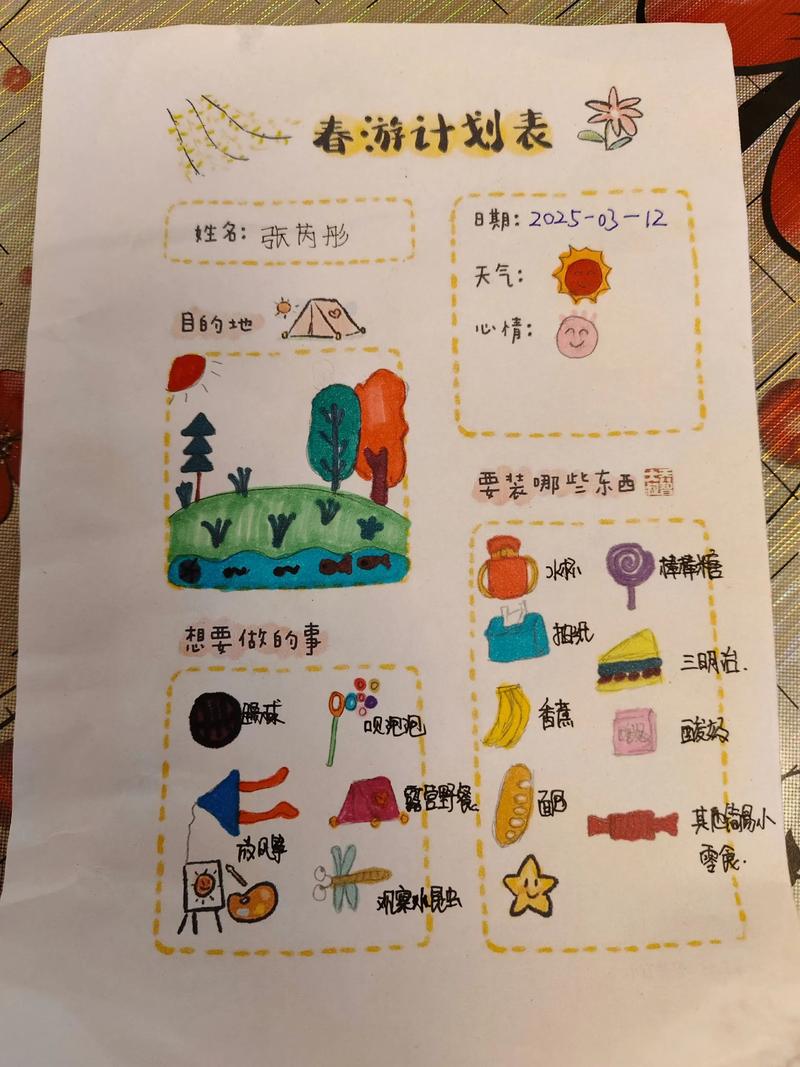 春游计划表
姓名：张芮彤
日期：2025-03-12
天气：
心情：
目的地
要装哪些东西
水杯
棒棒糖
抽纸
三明治.
香蕉
酸奶
面包
其他简易小
零食.
想要做的事
踢球
吹泡泡
放风筝
露营野餐
观察水昆虫